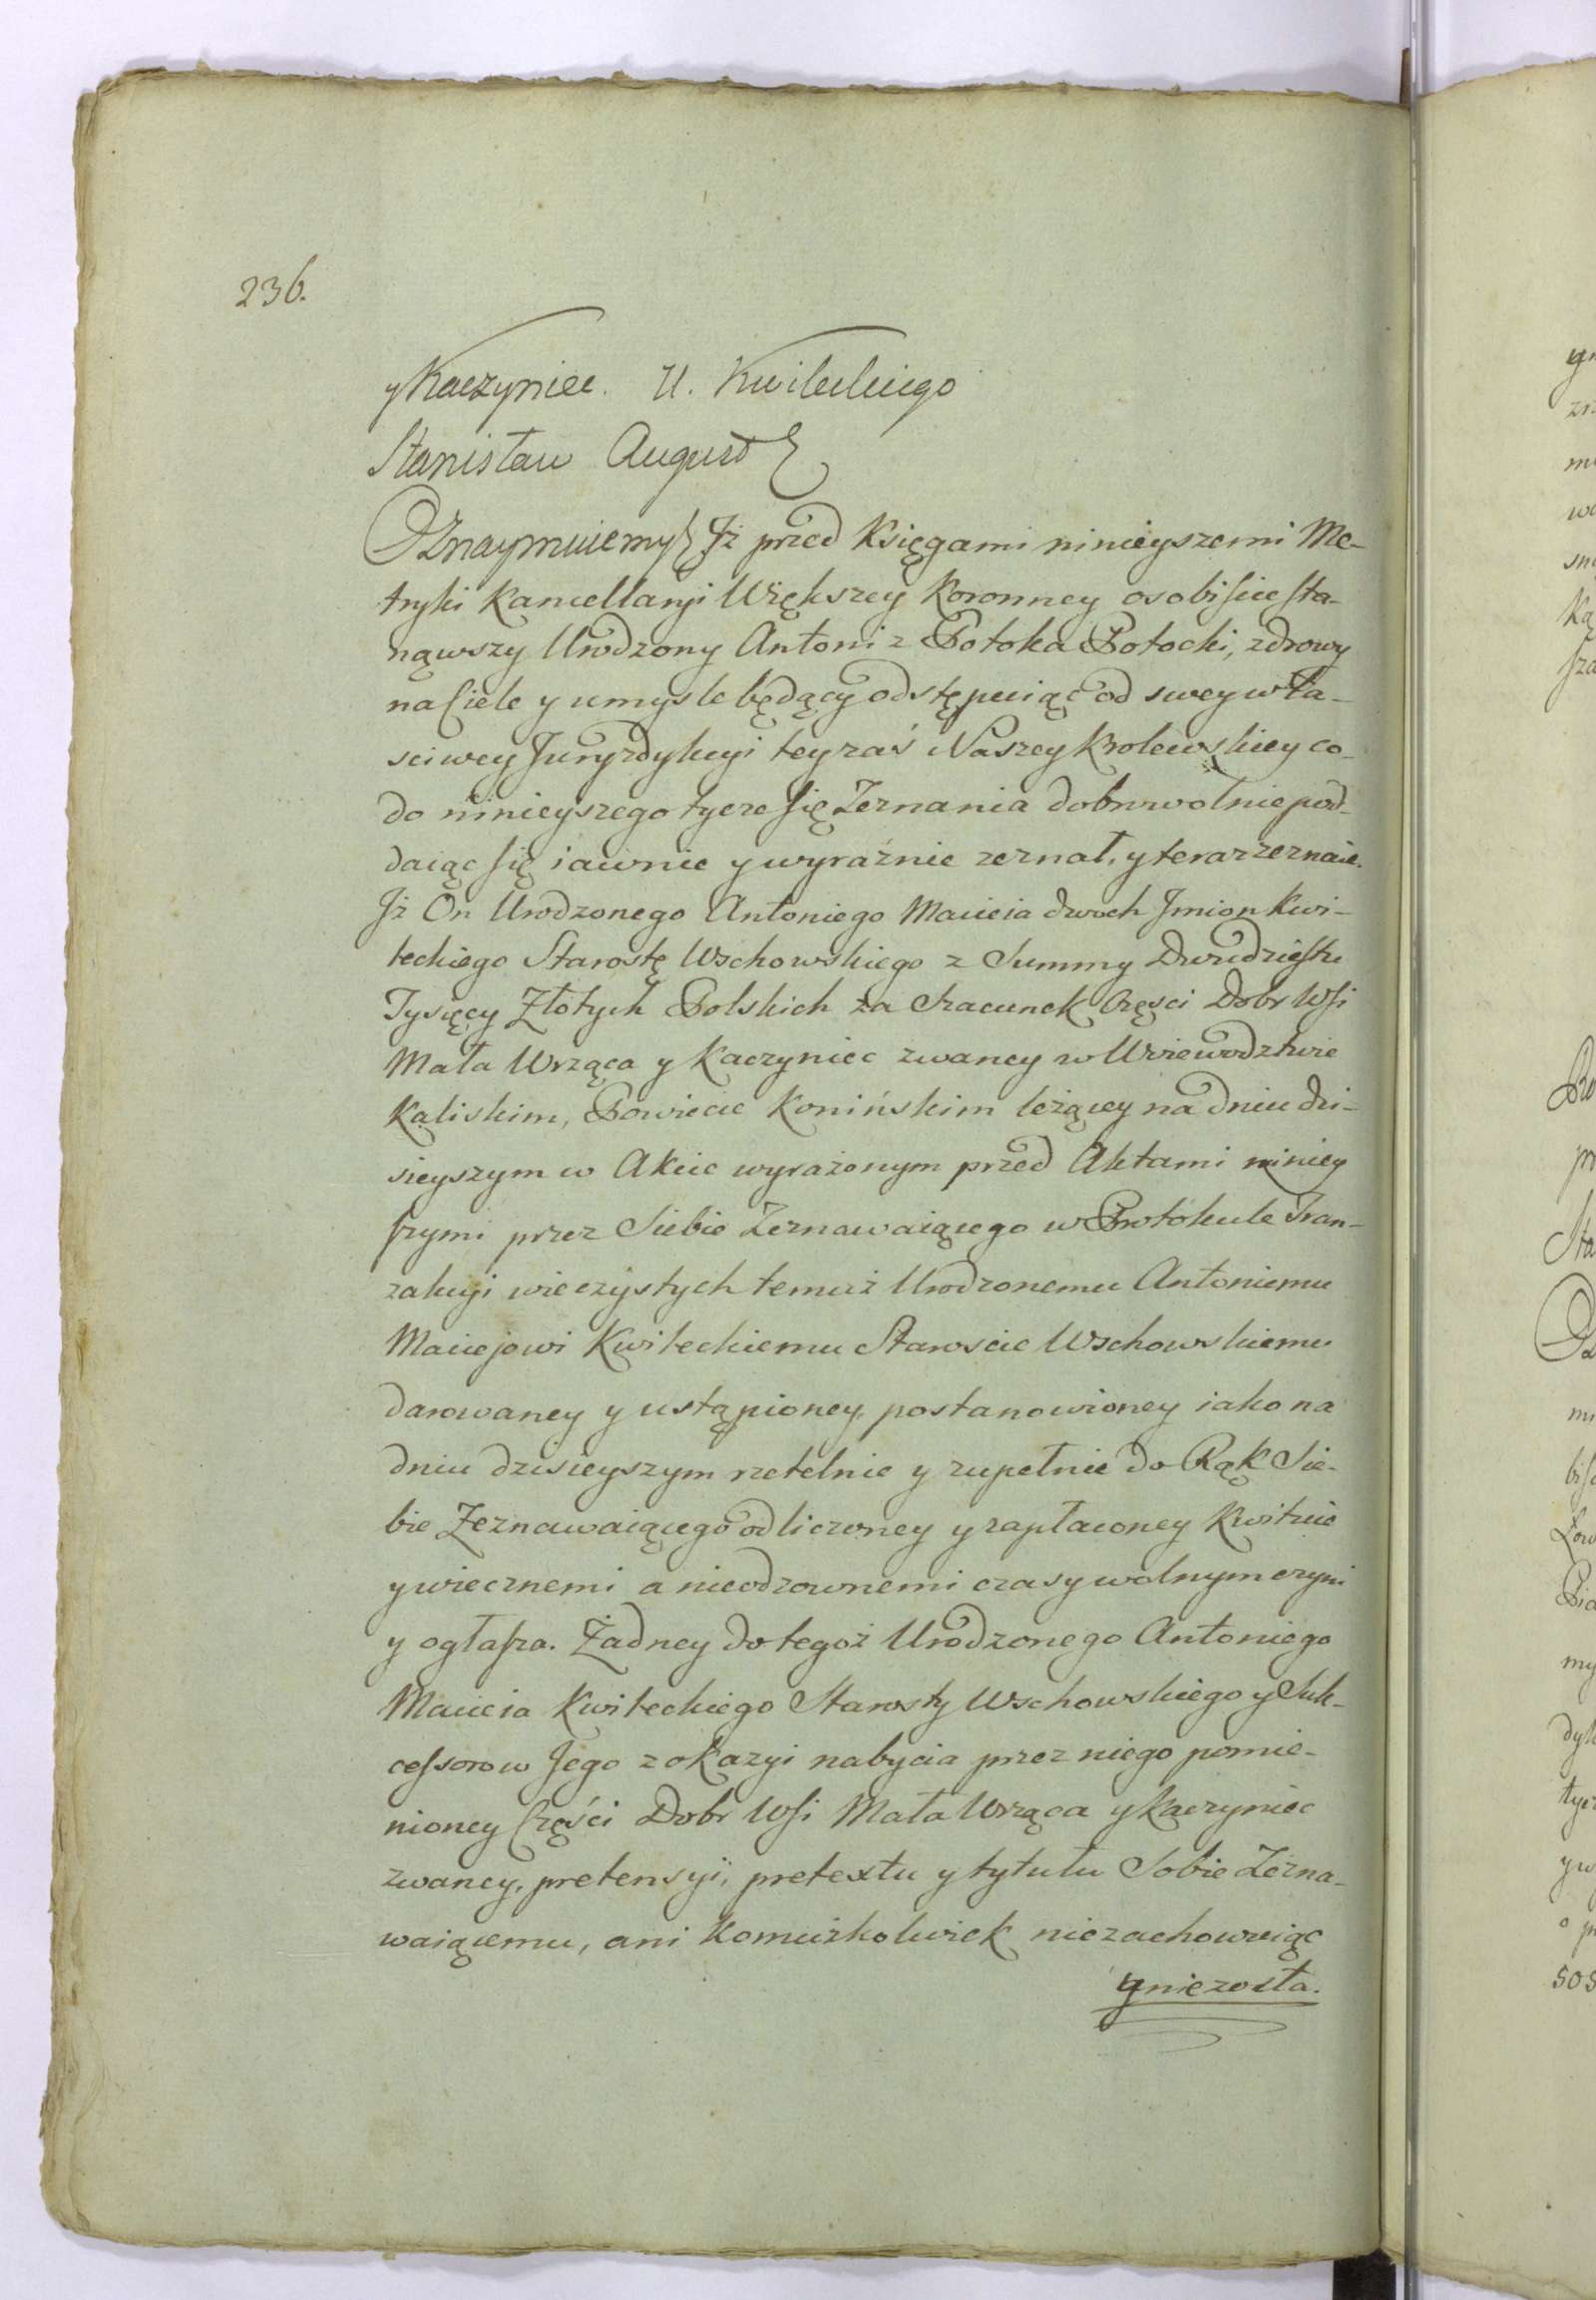 236.
y Kaczyniec. U. Kwileckiego
Stanisław August
Oznaymuiemy Iż przed Księgami ninieyszemi Me-
tryki Kancellaryi Większey Koronney osobiscie sta-
nąwszy Urodzony Antoni z Potoka Potocki, zdrowy
na Ciele y umysle będący odstępuiąc od swey wła-
sciwey Juryzdykcyi teyzaś Naszey Krolewskiey co-
do ninieyszego tycze się Zeznania dobrowolnie pod-
daiąc się iawnie y wyraźnie zeznał, y teraz zeznaie.
Iż On Urodzonego Antoniego Macieia dwoch Imion Kwi-
leckiego Starostę Wschowskiego z Summy Dwudziestu
Tysięcy Złotych Polskich za Szacunek Częsci Dobr Wsi
Mała Wrząca y Kaczyniec zwaney w Woiewodztwie
Kaliskim, Powiecie Konińskim leżącey na dniu dzi-
sieyszym w Akcie wyrażonym przed Aktami niniey
szymi przez Siebie Zeznawaiącego w Protokule Tran-
zakcyi wieczystych temuż Urodzonemu Antoniemu
Maciejowi Kwileckiemu Staroscie Wschowskiemu
darowaney y ustąpioney, postanowioney iako na
dniu dzisieyszym rzetelnie y zupełnie do Rąk Sie-
bie Zeznawaiącego odliczoney y zapłaconey Kwituie
y wiecznemi a nieodzownemi czasy wolnym czyni
y ogłasza. Żadney do tegoż Urodzonego Antoniego
Macieia Kwileckiego Starosty Wschowskiego y Suk-
cessorow Jego z okazyi nabycia przez niego pomie-
nioney Części Dobr Wsi Mała Wrząca y Kaczyniec
zwaney, pretensyi, pretextu y tytułu Sobie Zezna-
waiącemu, ani komużkolwiek niezachowuiąc
y niezosta.